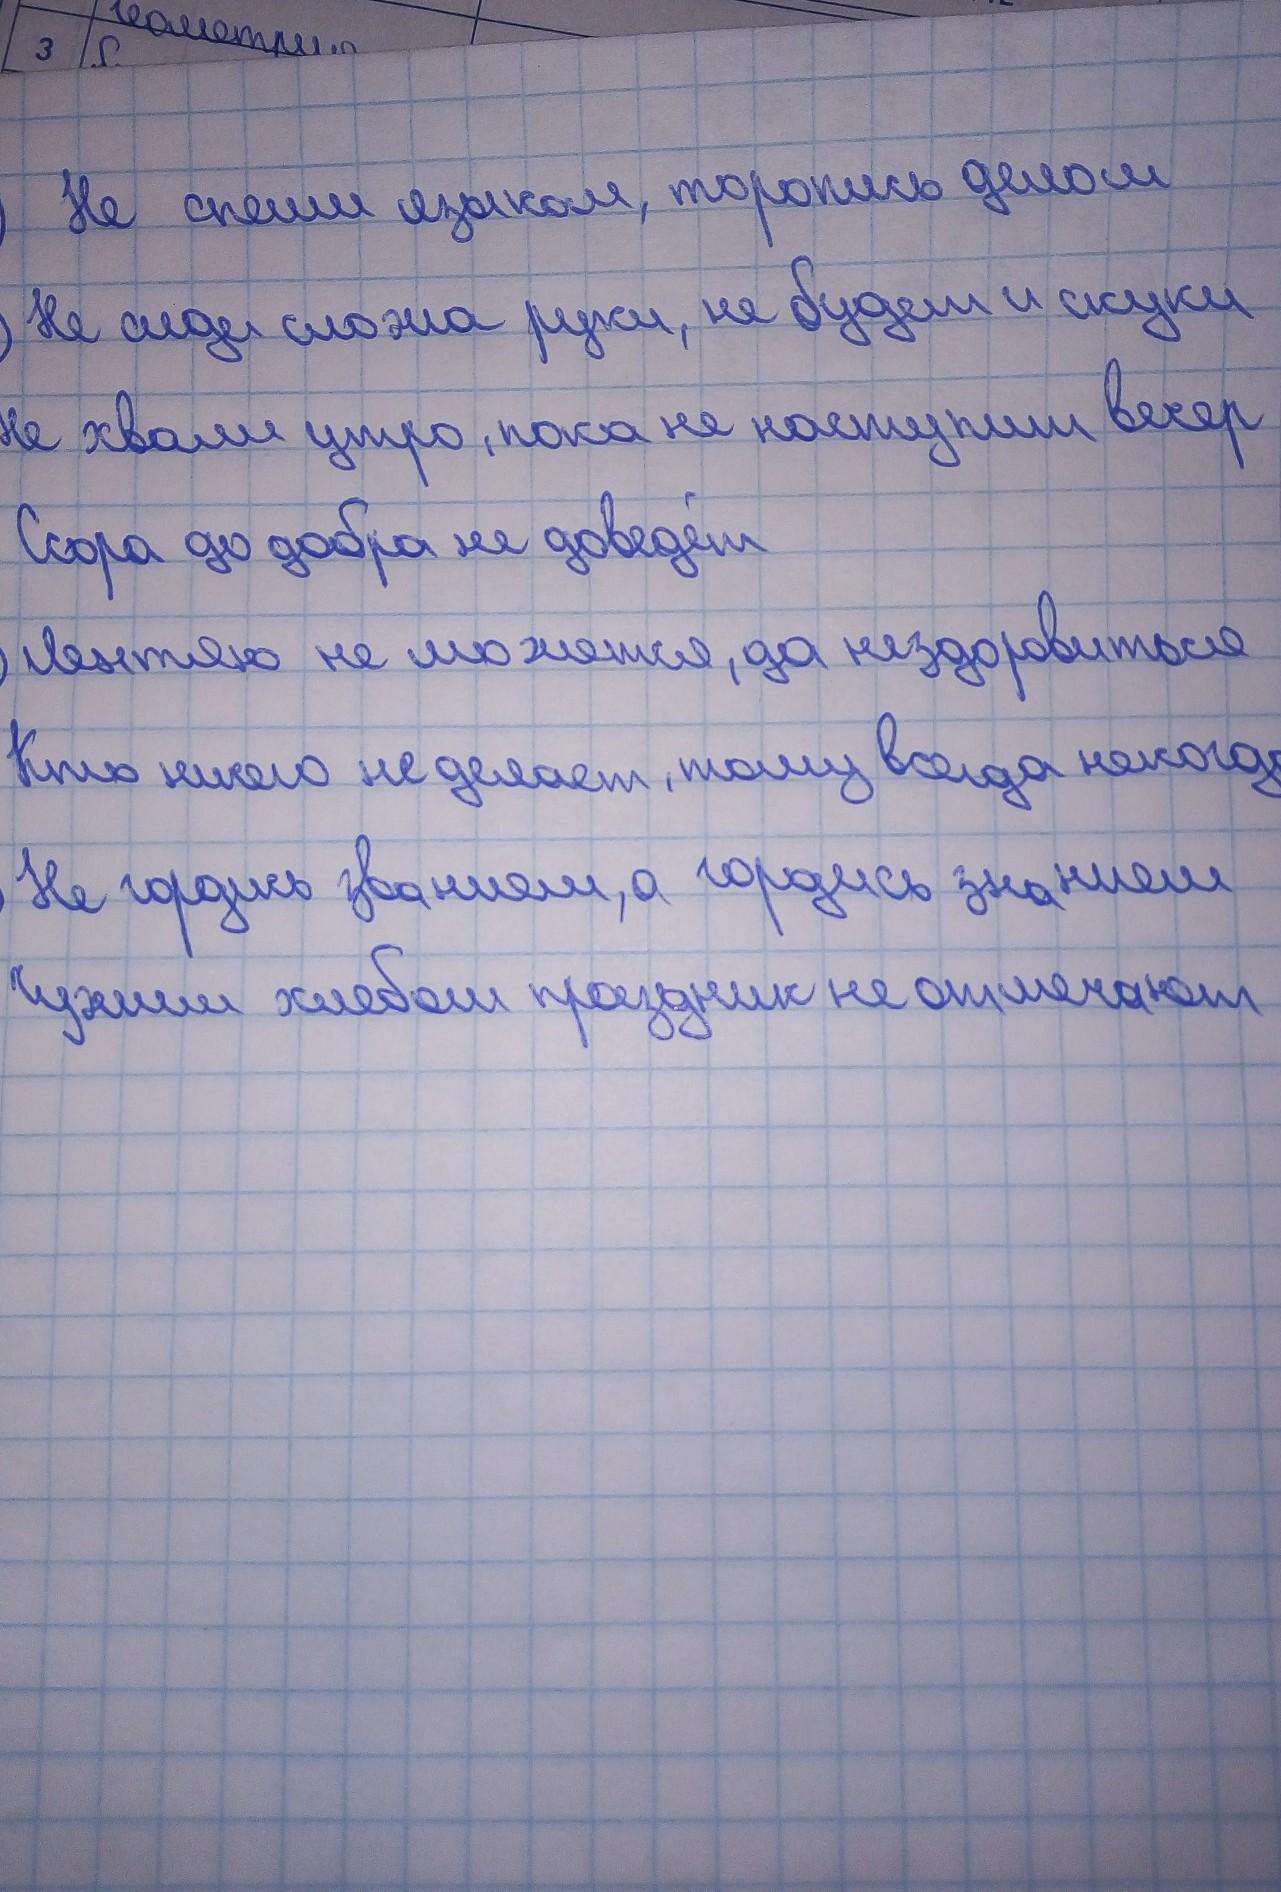 3 геометрия
Не спеши языком, торопись делом
Не сиди сложа руки, не будет и скуки
Не хвали утро, пока не наступит вечер
Ссора до добра не доведёт
Лентяю не можется, да нездоровиться
Кто ничего не делает, тому всегда некогда
Не гордись званием, а гордись знанием
Чужим хлебом праздник не отмечают